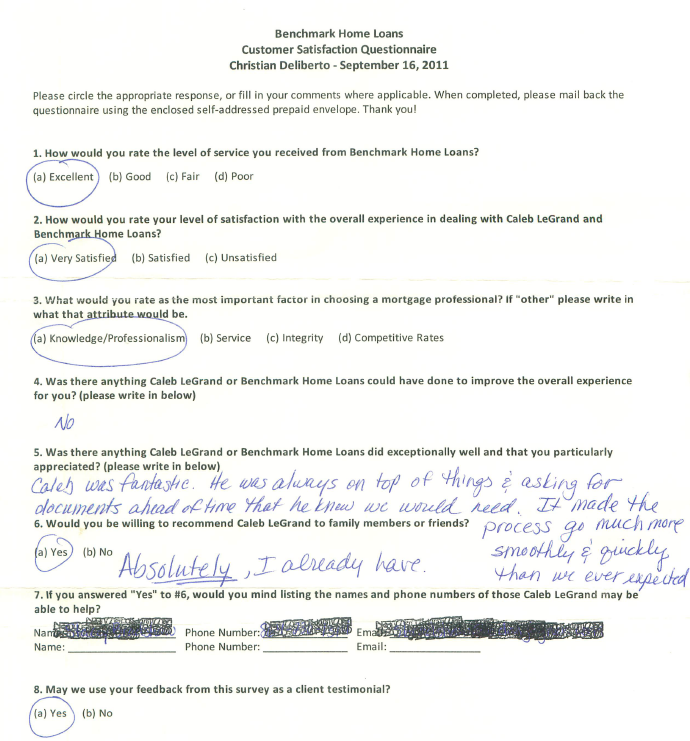 Benchmark Home Loans
Customer Satisfaction Questionnaire
Christian Deliberto - September 16, 2011
Please circle the appropriate response, or fill in your comments where applicable. When completed, please mail back the
questionnaire using the enclosed self-addressed prepaid envelope. Thank you!
1. How would you rate the level of service you received from Benchmark Home Loans?
(a) Excellent (b) Good (c) Fair (d) Poor
2. How would you rate your level of satisfaction with the overall experience in dealing with Caleb LeGrand and
Benchmark Home Loans?
(a) Very Satisfied (b) Satisfied (c) Unsatisfied
3. What would you rate as the most important factor in choosing a mortgage professional? If "other" please write in
what that attribute would be.
(a) Knowledge/Professionalism (b) Service (c) Integrity (d) Competitive Rates
4. Was there anything Caleb LeGrand or Benchmark Home Loans could have done to improve the overall experience
for you? (please write in below)
No
5. Was there anything Caleb LeGrand or Benchmark Home Loans did exceptionally well and that you particularly
appreciated? (please write in below)
Caleb was fantastic. He was always on top of things & asking for
documents ahead of time that he knew we would need. It made the
process go much more
smoothly & quickly
than we ever expected
6. Would you be willing to recommend Caleb LeGrand to family members or friends?
(a) Yes (b) No
Absolutely, I already have.
7. If you answered "Yes" to #6, would you mind listing the names and phone numbers of those Caleb LeGrand may be
able to help?
Name: Phone Number: Email:
Name: Phone Number: Email:
8. May we use your feedback from this survey as a client testimonial?
(a) Yes (b) No